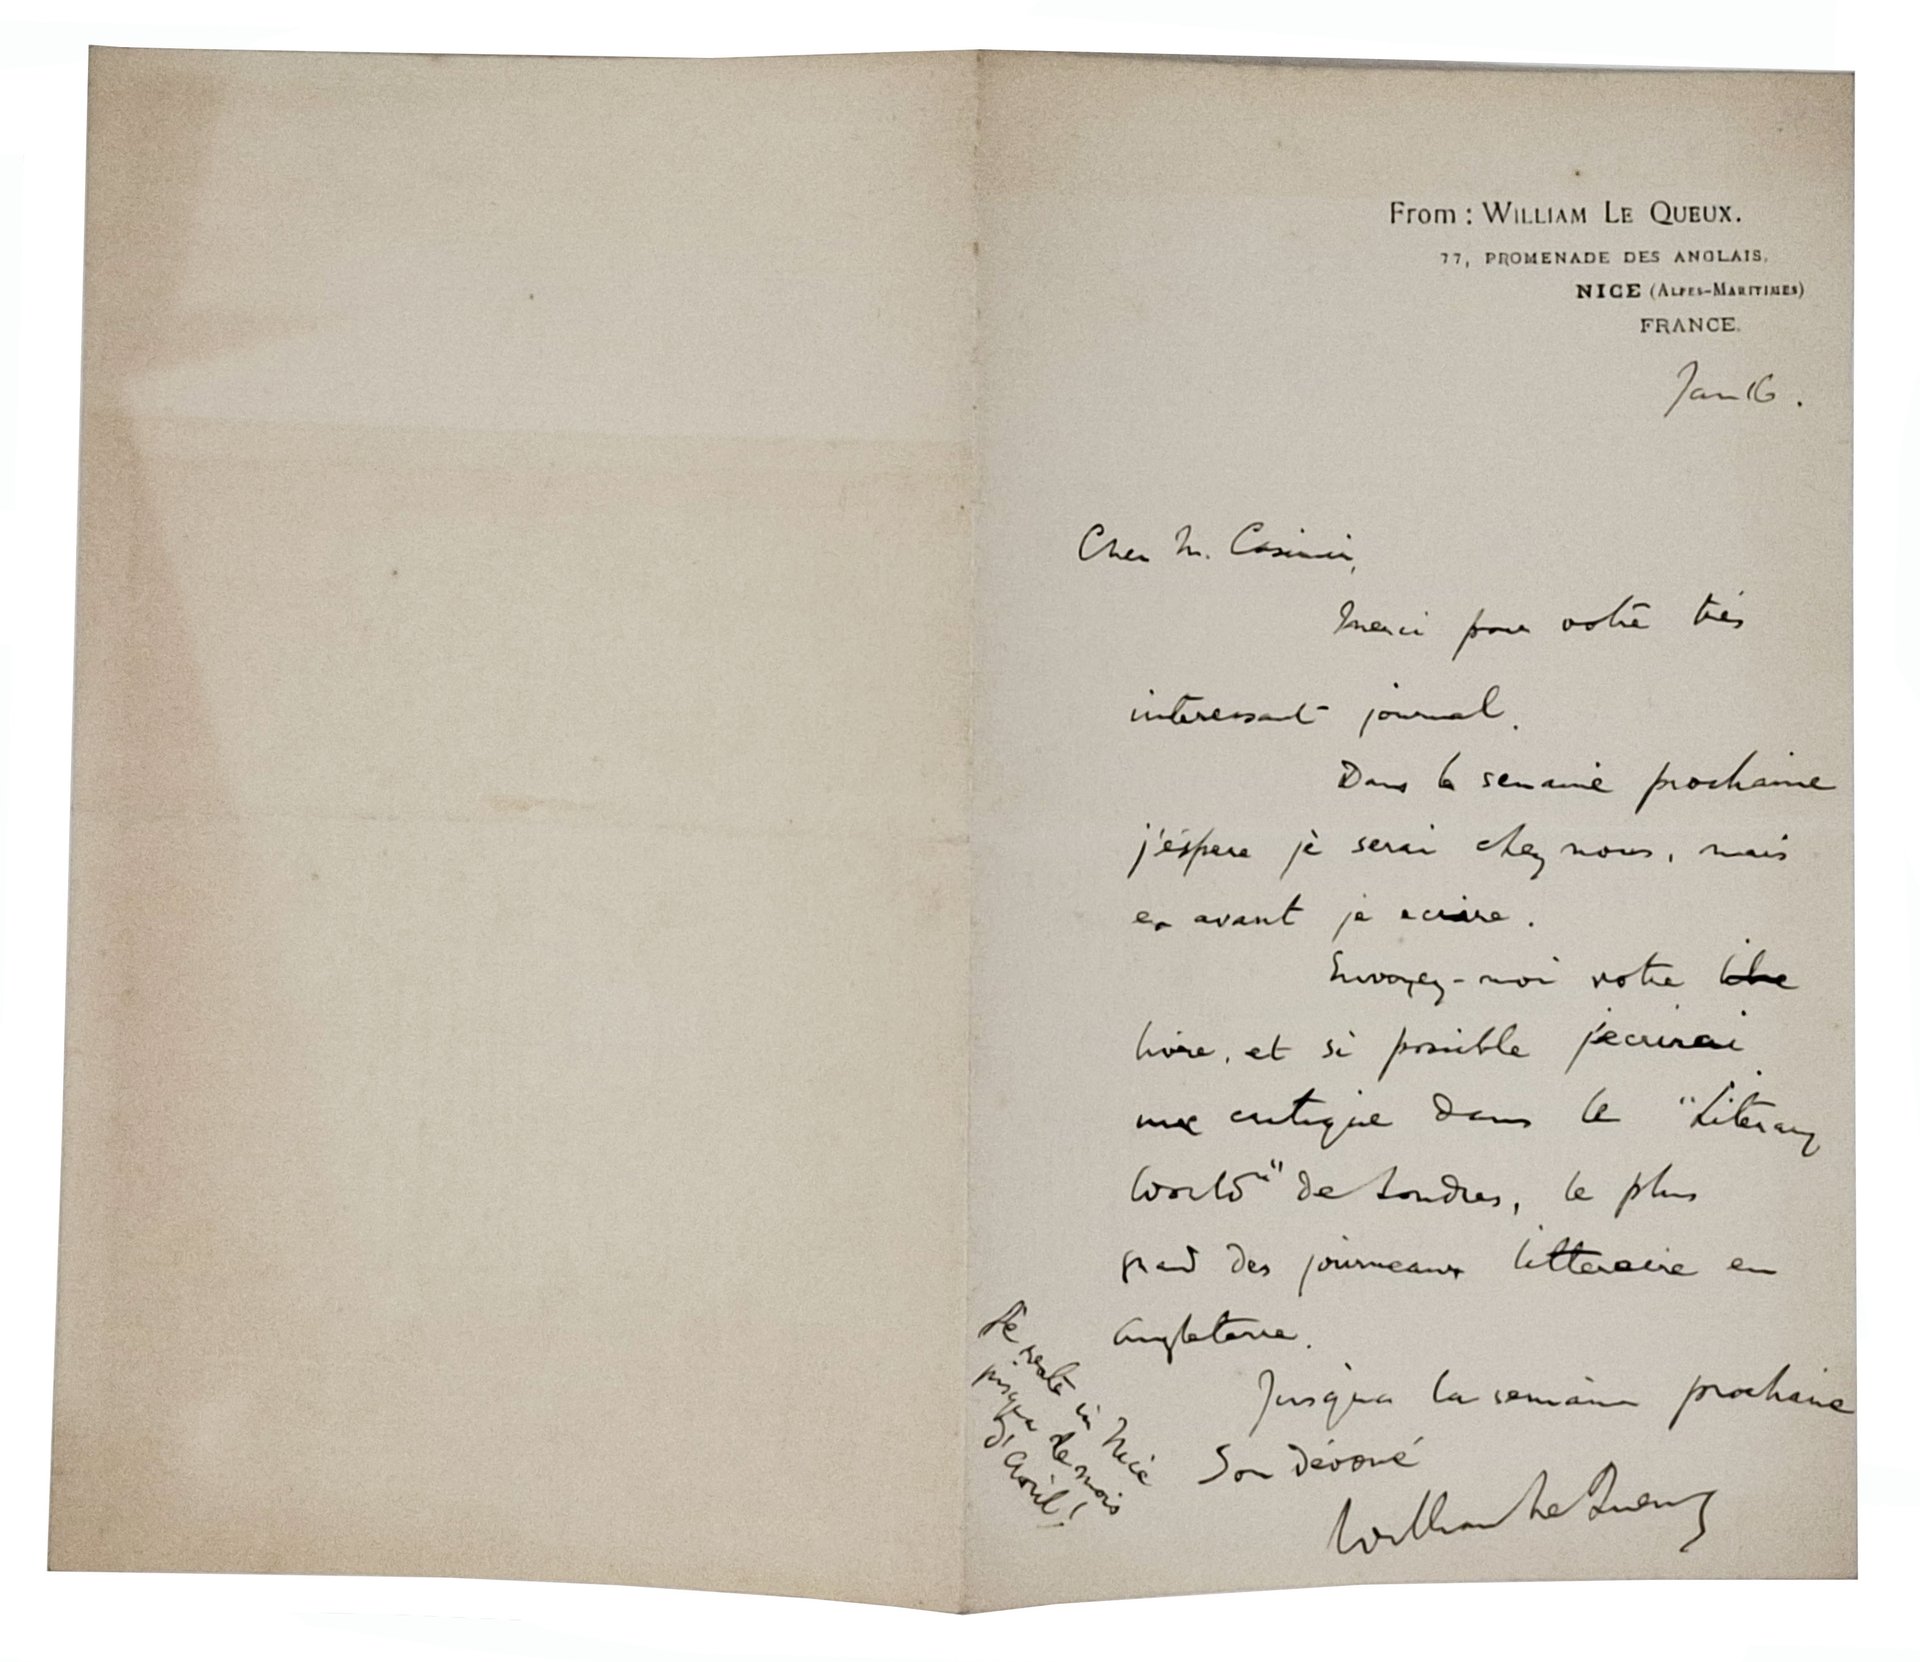 From : WILLIAM LE QUEUX.
77, PROMENADE DES ANGLAIS,
NICE (ALPES-MARITIMES)
FRANCE.
Jan 16.
Cher M. Casimir,
Merci pour votre très
interessant journal.
Dans la semaine prochaine
j'éspere je serai chez nous, mais
en avant je ecrire.
Envoyez-moi votre
livre, et si possible j'ecrirai
une critique dans le "Literary
World" de Londres, le plus
grand des journeaux litteraire en
Angleterre.
Jusqua la semaine prochaine
Son dévoué
William Le Queux
Je reste in Nice
jusqua le mois
d'Avril!